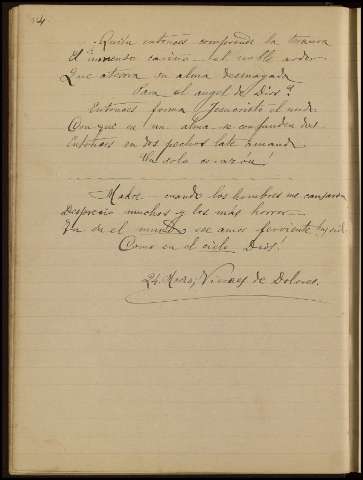 54.
Quién entonces comprende la ternura
El inmenso cariño el noble ardor
Que atesora su alma desmayada
Para el angel de Dios?
Entonces forma Jesucristo el nudo
Con que en un alma se confunden dos
Entonces en dos pechos late amando
Un solo corazón!
Madre cuando los hombres me causaron
Desprecio muchos y los más horror
en el mundo ese amor ferviente
Como en el cielo Dios!
24 Marzo, Viernes de Dolores.